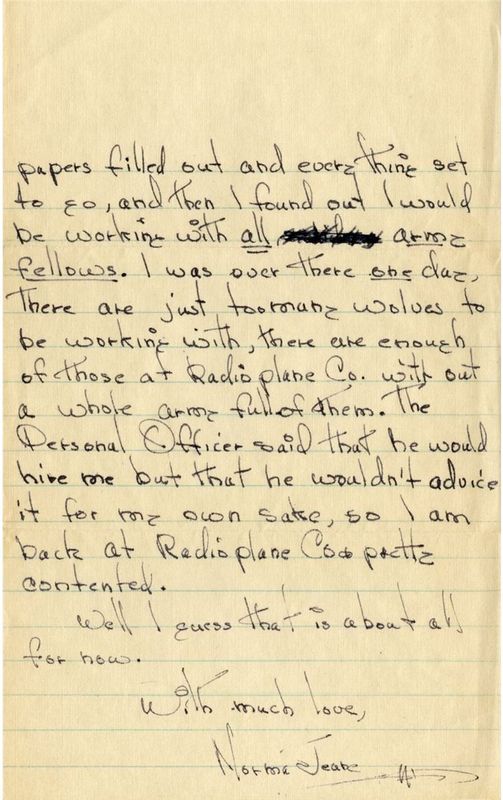 papers filled out and everything set
to go, and then I found out I would
be working with all, army
fellows. I was over there one day,
there are just too many wolves to
be working with, there are enough
of those at Radioplane Co. with out
a whole army full of them. The
Personal Officer said that he would
hire me but that he wouldn't advice
it for my own sake, so I am
back at Radioplane Co & pretty
contented.
Well I guess that is about all
for now.
With much love,
Norma Jeane